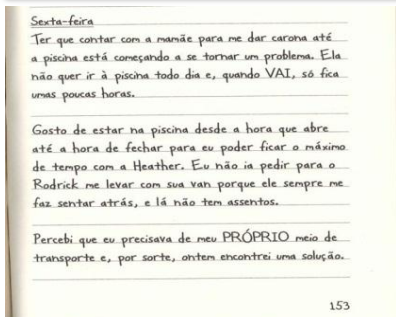 Sexta-feira
Ter que contar com a mamãe para me dar carona até
a piscina está começando a se tornar um problema. Ela
não quer ir à piscina todo dia e, quando VAI, só fica
umas poucas horas.
Gosto de estar na piscina desde a hora que abre
até a hora de fechar para eu poder ficar o máximo
de tempo com a Heather. Eu não ia pedir para o
Rodrick me levar com sua van porque ele sempre me
faz sentar atrás, e lá não tem assentos.
Percebi que eu precisava de meu PRÓPRIO meio de
transporte e, por sorte, ontem encontrei uma solução.
153